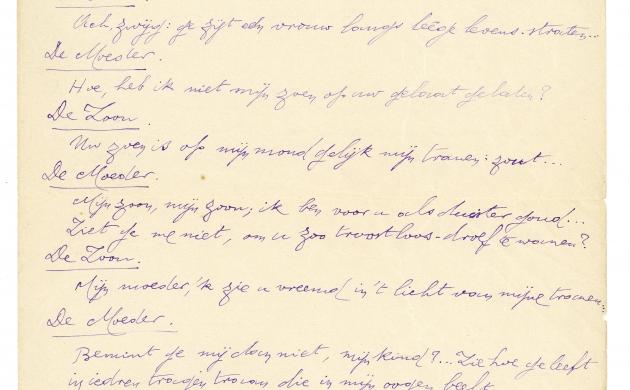 Ach, zwijg: ge zijt een vrouw langs leêge levens-straten...
De Moeder.
Hoe, heb ik niet mijn zoen op uw gelaat gelaten?
De Zoon.
Uw zoen is op mijn mond gelijk mijn tranen: zout...
De Moeder.
Mijn zoon, mijn zoon; ik ben voor u als duister goud...
Ziet ge me niet, om u zoo troostloos-droef te wanen?
De Zoon.
Mijn moeder, 'k zie u vreemd in 't licht van mijne tranen.
De Moeder.
Bemint ge mij dan niet, mijn kind?... Zie hoe ge leeft
in iedren tragen traan die in mijn oogen beeft